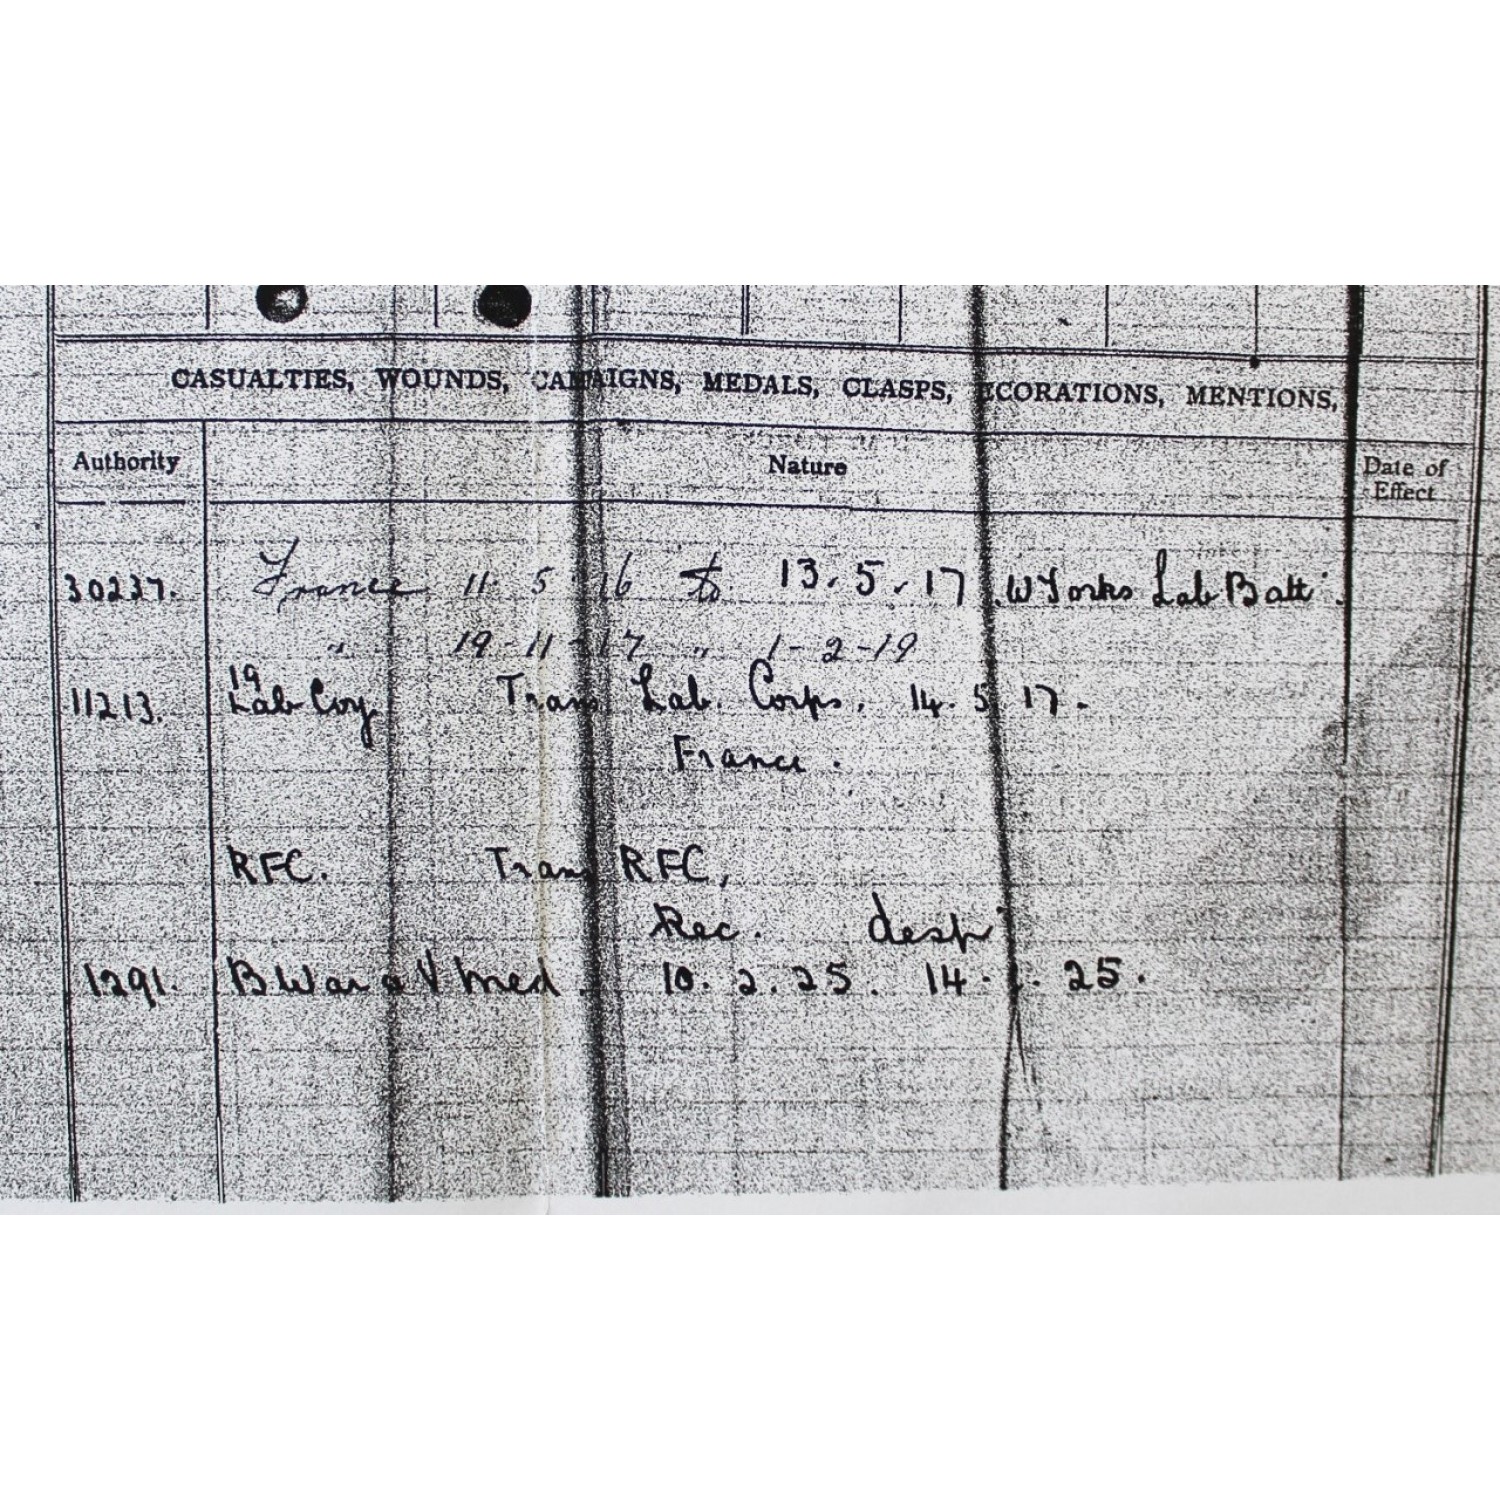 CASUALTIES, WOUNDS, CAMPAIGNS, MEDALS, CLASPS, DECORATIONS, MENTIONS,
Authority Nature Date of Effect
30237. France 11 5 16 to 13.5.17 W Yorks Lab Batt.
" 19-11-17 " 1-2-19
19
11213. Lab Coy Trans Lab. Corps. 14.5 17.
France.
RFC. Trans RFC,
Rec. desp
1291. B War a V Med. 10.2.25. 14. . 25.